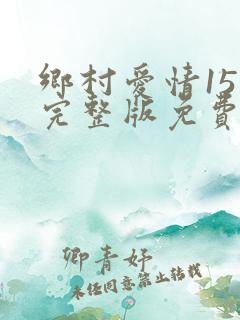 鄉村愛情15
完整版免費
卿青妤
未经同意禁止转载